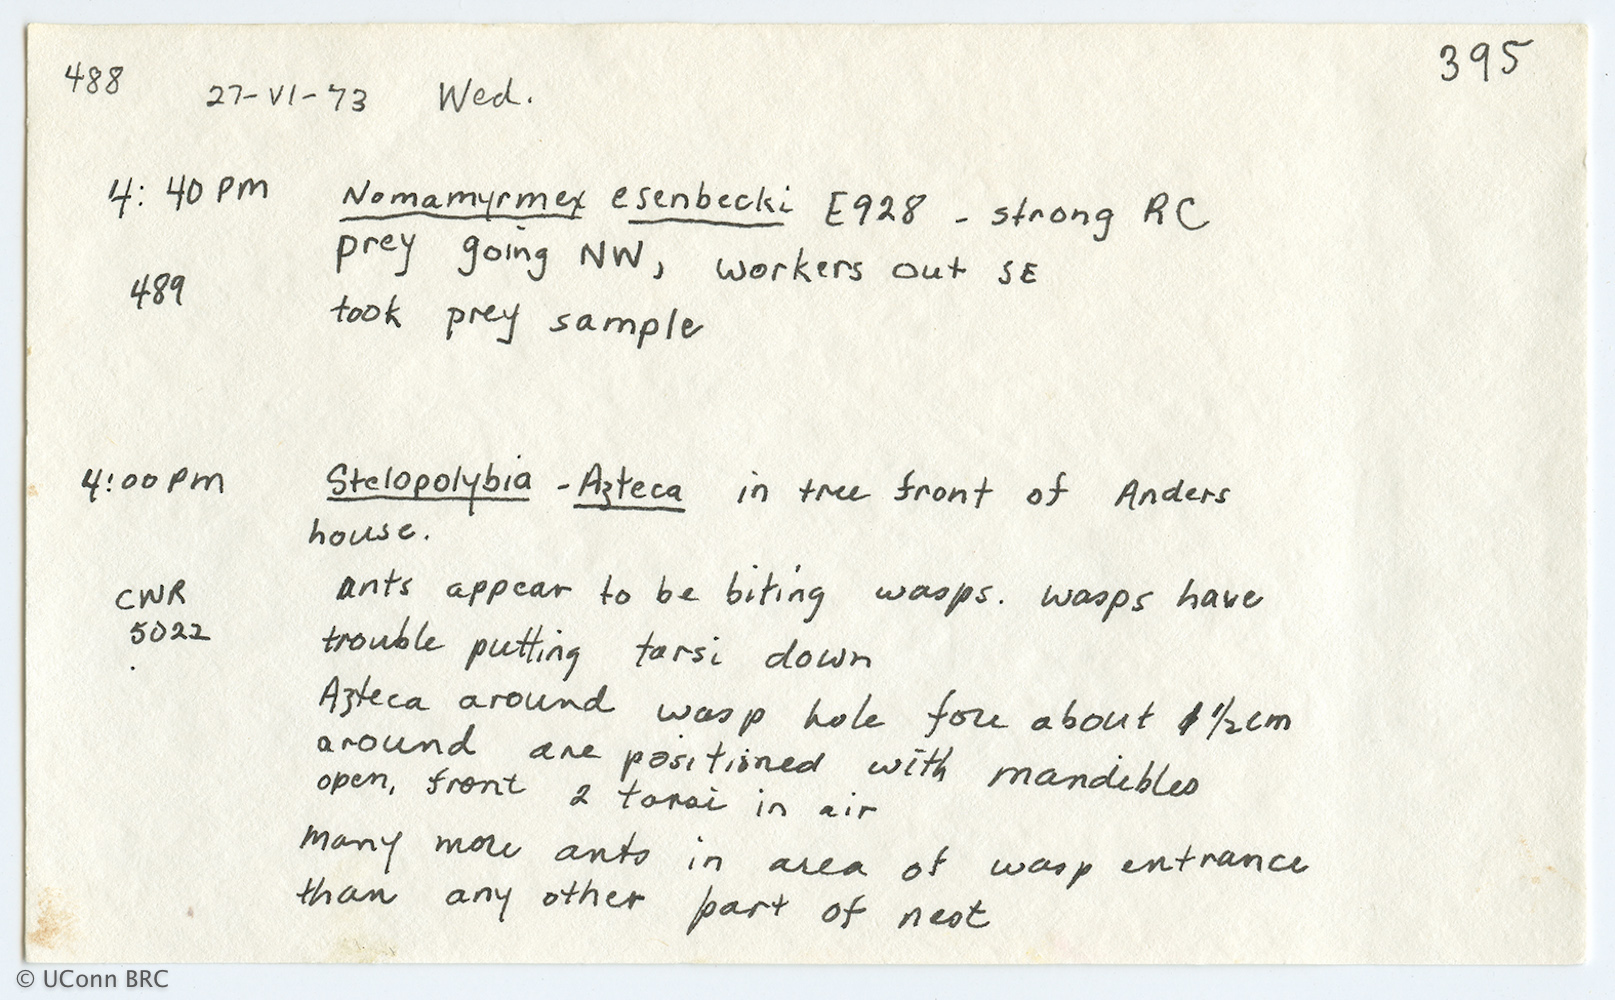 488
395
27-VI-73 Wed.
4:40 PM Nomamyrmex esenbecki E928 - strong RC
prey going NW, workers out SE
489 took prey sample
4:00 PM Stelopolybia - Azteca in tree front of Anders
house.
CWR ants appear to be biting wasps. wasps have
5022 trouble putting tarsi down
Azteca around wasp hole fore about 1 1/2 cm
around are positioned with mandibles
open, front 2 tarsi in air
Many more ants in area of wasp entrance
than any other part of nest
© UConn BRC